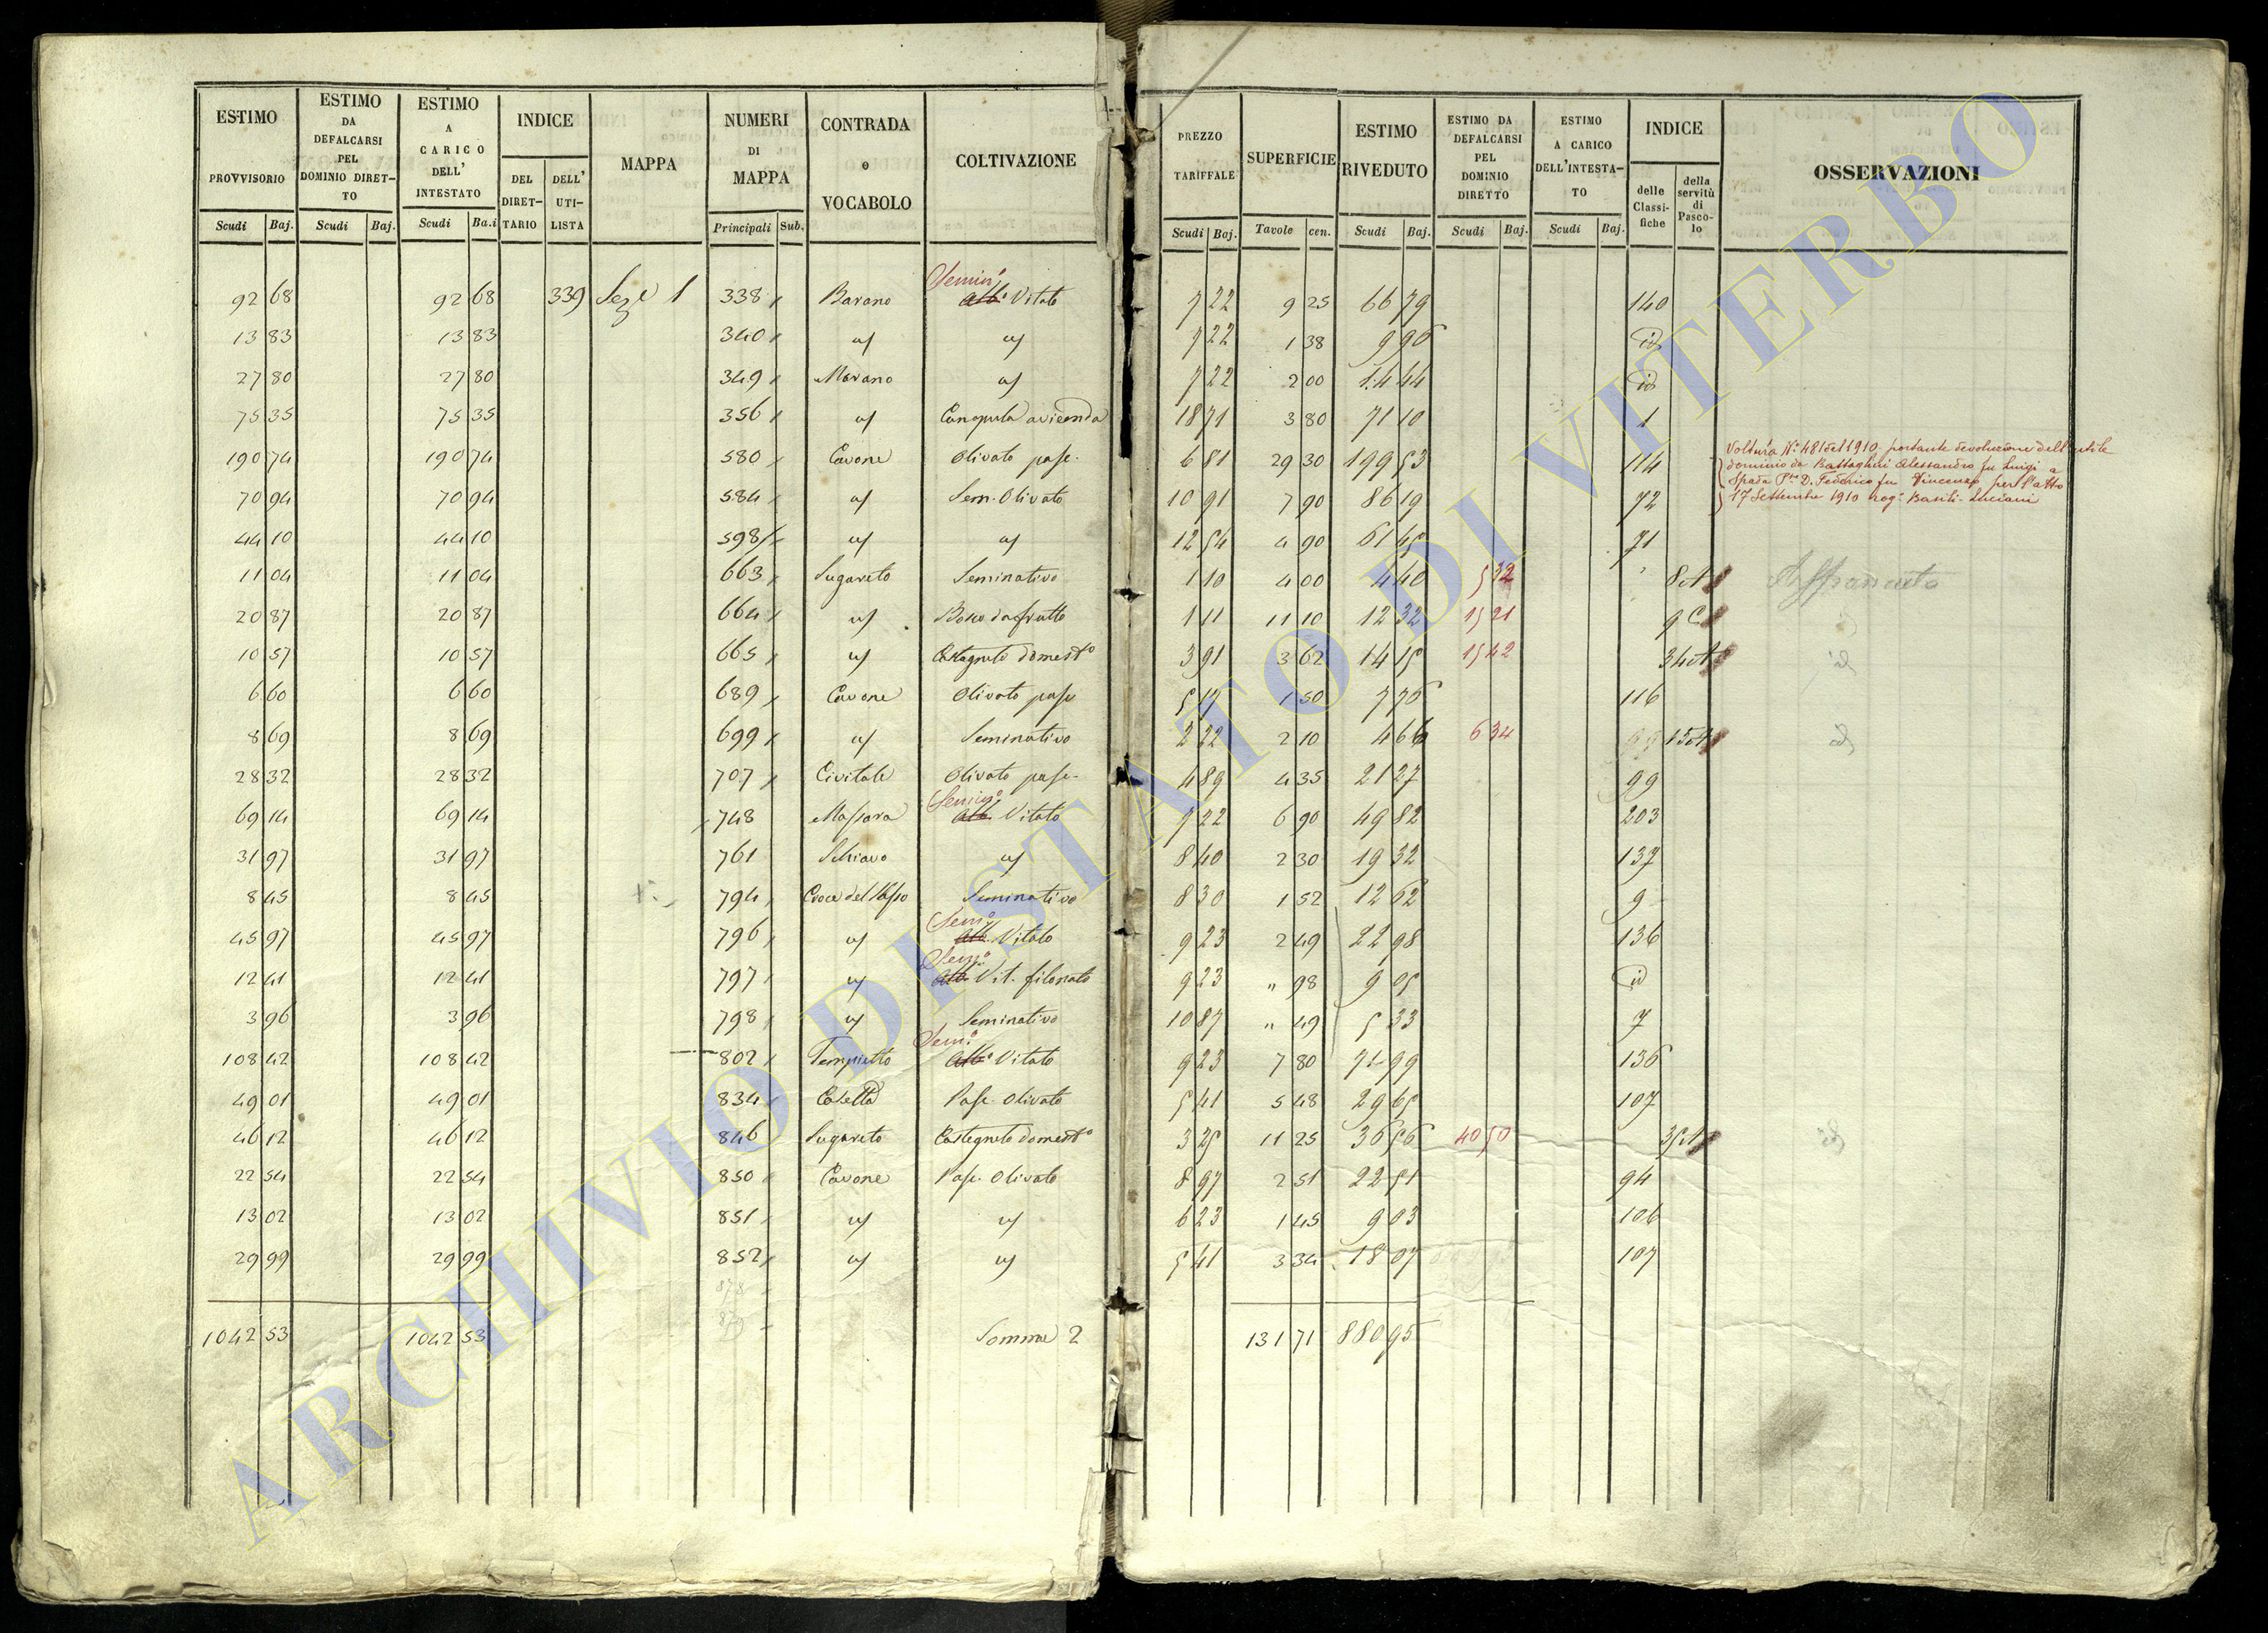 ESTIMO PROVVISORIO Scudi Baj.
ESTIMO DA DEFALCARSI PEL DOMINIO DIRETTO Scudi Baj.
ESTIMO A CARICO DELL' INTESTATO Scudi Ba.i
INDICE DEL DIRETTARIO DELL' UTILISTA
MAPPA
NUMERI DI MAPPA Principali Sub.
CONTRADA e VOCABOLO
COLTIVAZIONE
PREZZO TARIFFALE Scudi Baj.
SUPERFICIE Tavole cen.
ESTIMO RIVEDUTO Scudi Baj.
ESTIMO DA DEFALCARSI PEL DOMINIO DIRETTO Scudi Baj.
ESTIMO A CARICO DELL'INTESTATO Scudi Baj.
INDICE delle Classifiche della servitù di Pascolo
OSSERVAZIONI
92 68 92 68 339 Seze 1 338 Barano Semin° Alb° Vitato 7 22 9 25 66 79 140
13 83 13 83 340 id id 7 22 1 38 9 96 id
27 80 27 80 349 Marano id 7 22 2 00 14 44 id
75 35 75 35 356 id Canapula avicenda 18 71 3 80 71 10 1
190 74 190 74 580 Cavone Olivato pasc. 6 81 29 30 199 53 114
70 94 70 94 584 id Sem. Olivato 10 91 7 90 86 19 72
Voltura N° 481 del 1910 portante devoluzione dell'utile
dominio da Battaglini Alessandro fu Luigi a
Spada D. Federico fu Vincenzo per l'atto
17 Settembre 1910 rog° Basili-Luciani
44 10 44 10 598 id id 12 54 4 90 61 45 71
11 04 11 04 663 Sugareto Seminativo 1 10 4 00 4 40 5 32 8 A Affrancato
20 87 20 87 664 id Bosco da frutto 1 11 11 10 12 32 15 21 9 C
10 57 10 57 665 id Castagneto domest° 3 91 3 62 14 15 15 42 34 A id
6 60 6 60 689 Cavone Olivato pasc 5 17 1 50 7 76 116
8 69 8 69 699 id Seminativo 2 22 2 10 4 66 6 34 15 A id
28 32 28 32 707 Civitale Olivato pasc. 4 89 4 35 21 27 99
69 14 69 14 748 Massara Semin° Alb. Vitato 7 22 6 90 49 82 203
31 97 31 97 761 Schiavo id 8 40 2 30 19 32 137
8 45 8 45 794 Croce del Passo Seminativo 8 30 1 52 12 62 9
45 97 45 97 796 id Sem° Alb. Vitato 9 23 2 49 22 98 136
12 41 12 41 797 id Sem° Alb. Vit. filonato 9 23 " 98 9 05 id
3 96 3 96 798 id Seminativo 10 87 " 49 5 33 7
108 42 108 42 802 Tempietto Sem° Alb° Vitato 9 23 7 80 71 99 136
49 01 49 01 834 Casetta Pasc. Olivato 5 41 5 48 29 65 107
46 12 46 12 846 Sugareto Castagneto domest° 3 25 11 25 36 56 40 50 35 A id
22 54 22 54 850 Cavone Pasc. Olivato 8 97 2 51 22 51 94
13 02 13 02 851 id id 6 23 1 45 9 03 106
29 99 29 99 852 id id 5 41 3 34 18 07 107
878
879
1042 53 1042 53 Somma 2 131 71 880 95
ARCHIVIO DI STATO DI VITERBO